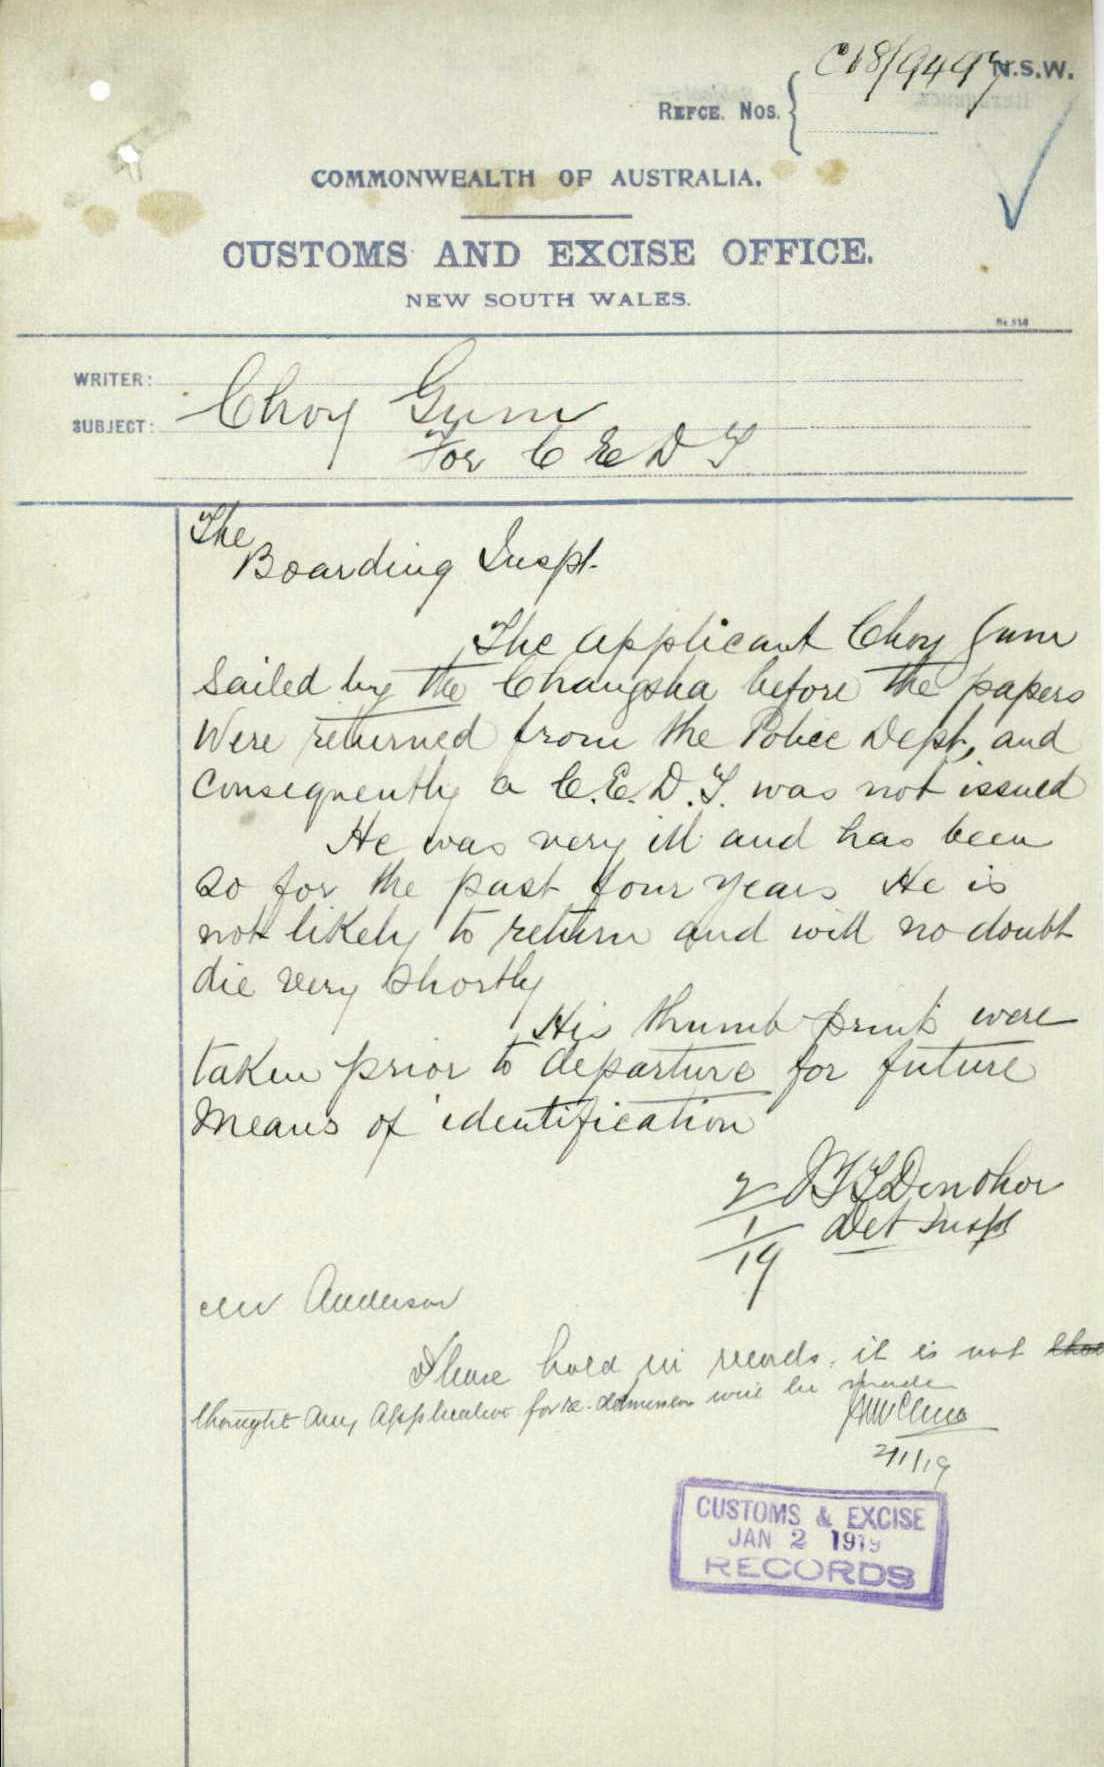 C18/9497 N.S.W.
REFCE. NOS.
COMMONWEALTH OF AUSTRALIA.
CUSTOMS AND EXCISE OFFICE.
NEW SOUTH WALES.
WRITER:
SUBJECT: Choy Gum
For C E D T
The
Boarding Inspt.
The applicant Choy Gum
Sailed by the Changsha before the papers
Were returned from the Police Dept, and
Consequently a C.E.D.T. was not issued
He was very ill and has been
so for the past four years He is
not likely to return and will no doubt
die very shortly
His thumb prints were
taken prior to departure for future
Means of identification
J Donohoe
2/1/19 Det Inspt
Mr Anderson
Please hold in records. it is not
thought any application for re-admission will be made
2/1/19
CUSTOMS & EXCISE
JAN 2 1919
RECORDS